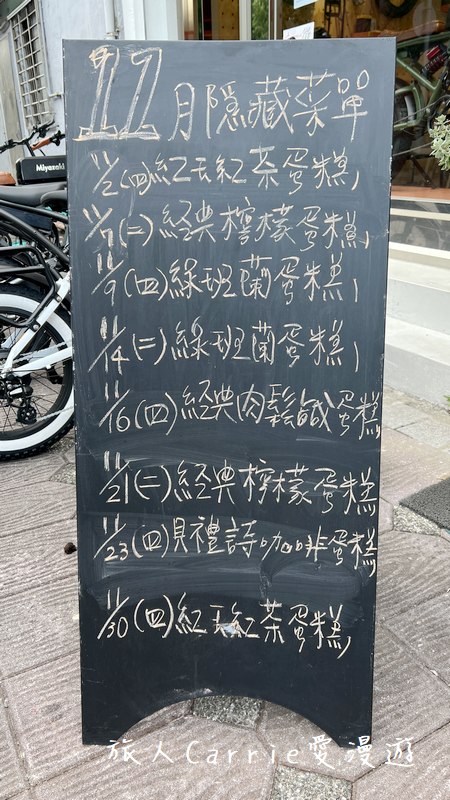 11月隱藏菜單
11/2(四)紅玉紅茶蛋糕,
11/7(二)經典檸檬蛋糕,
11/9(四)綠班蘭蛋糕,
11/14(二)綠班蘭蛋糕,
11/16(四)經典肉鬆鹹蛋糕
11/21(二)經典檸檬蛋糕
11/23(四)貝禮詩咖啡蛋糕
11/30(四)紅玉紅茶蛋糕,
Miyazaki
旅人Carrie愛漫遊